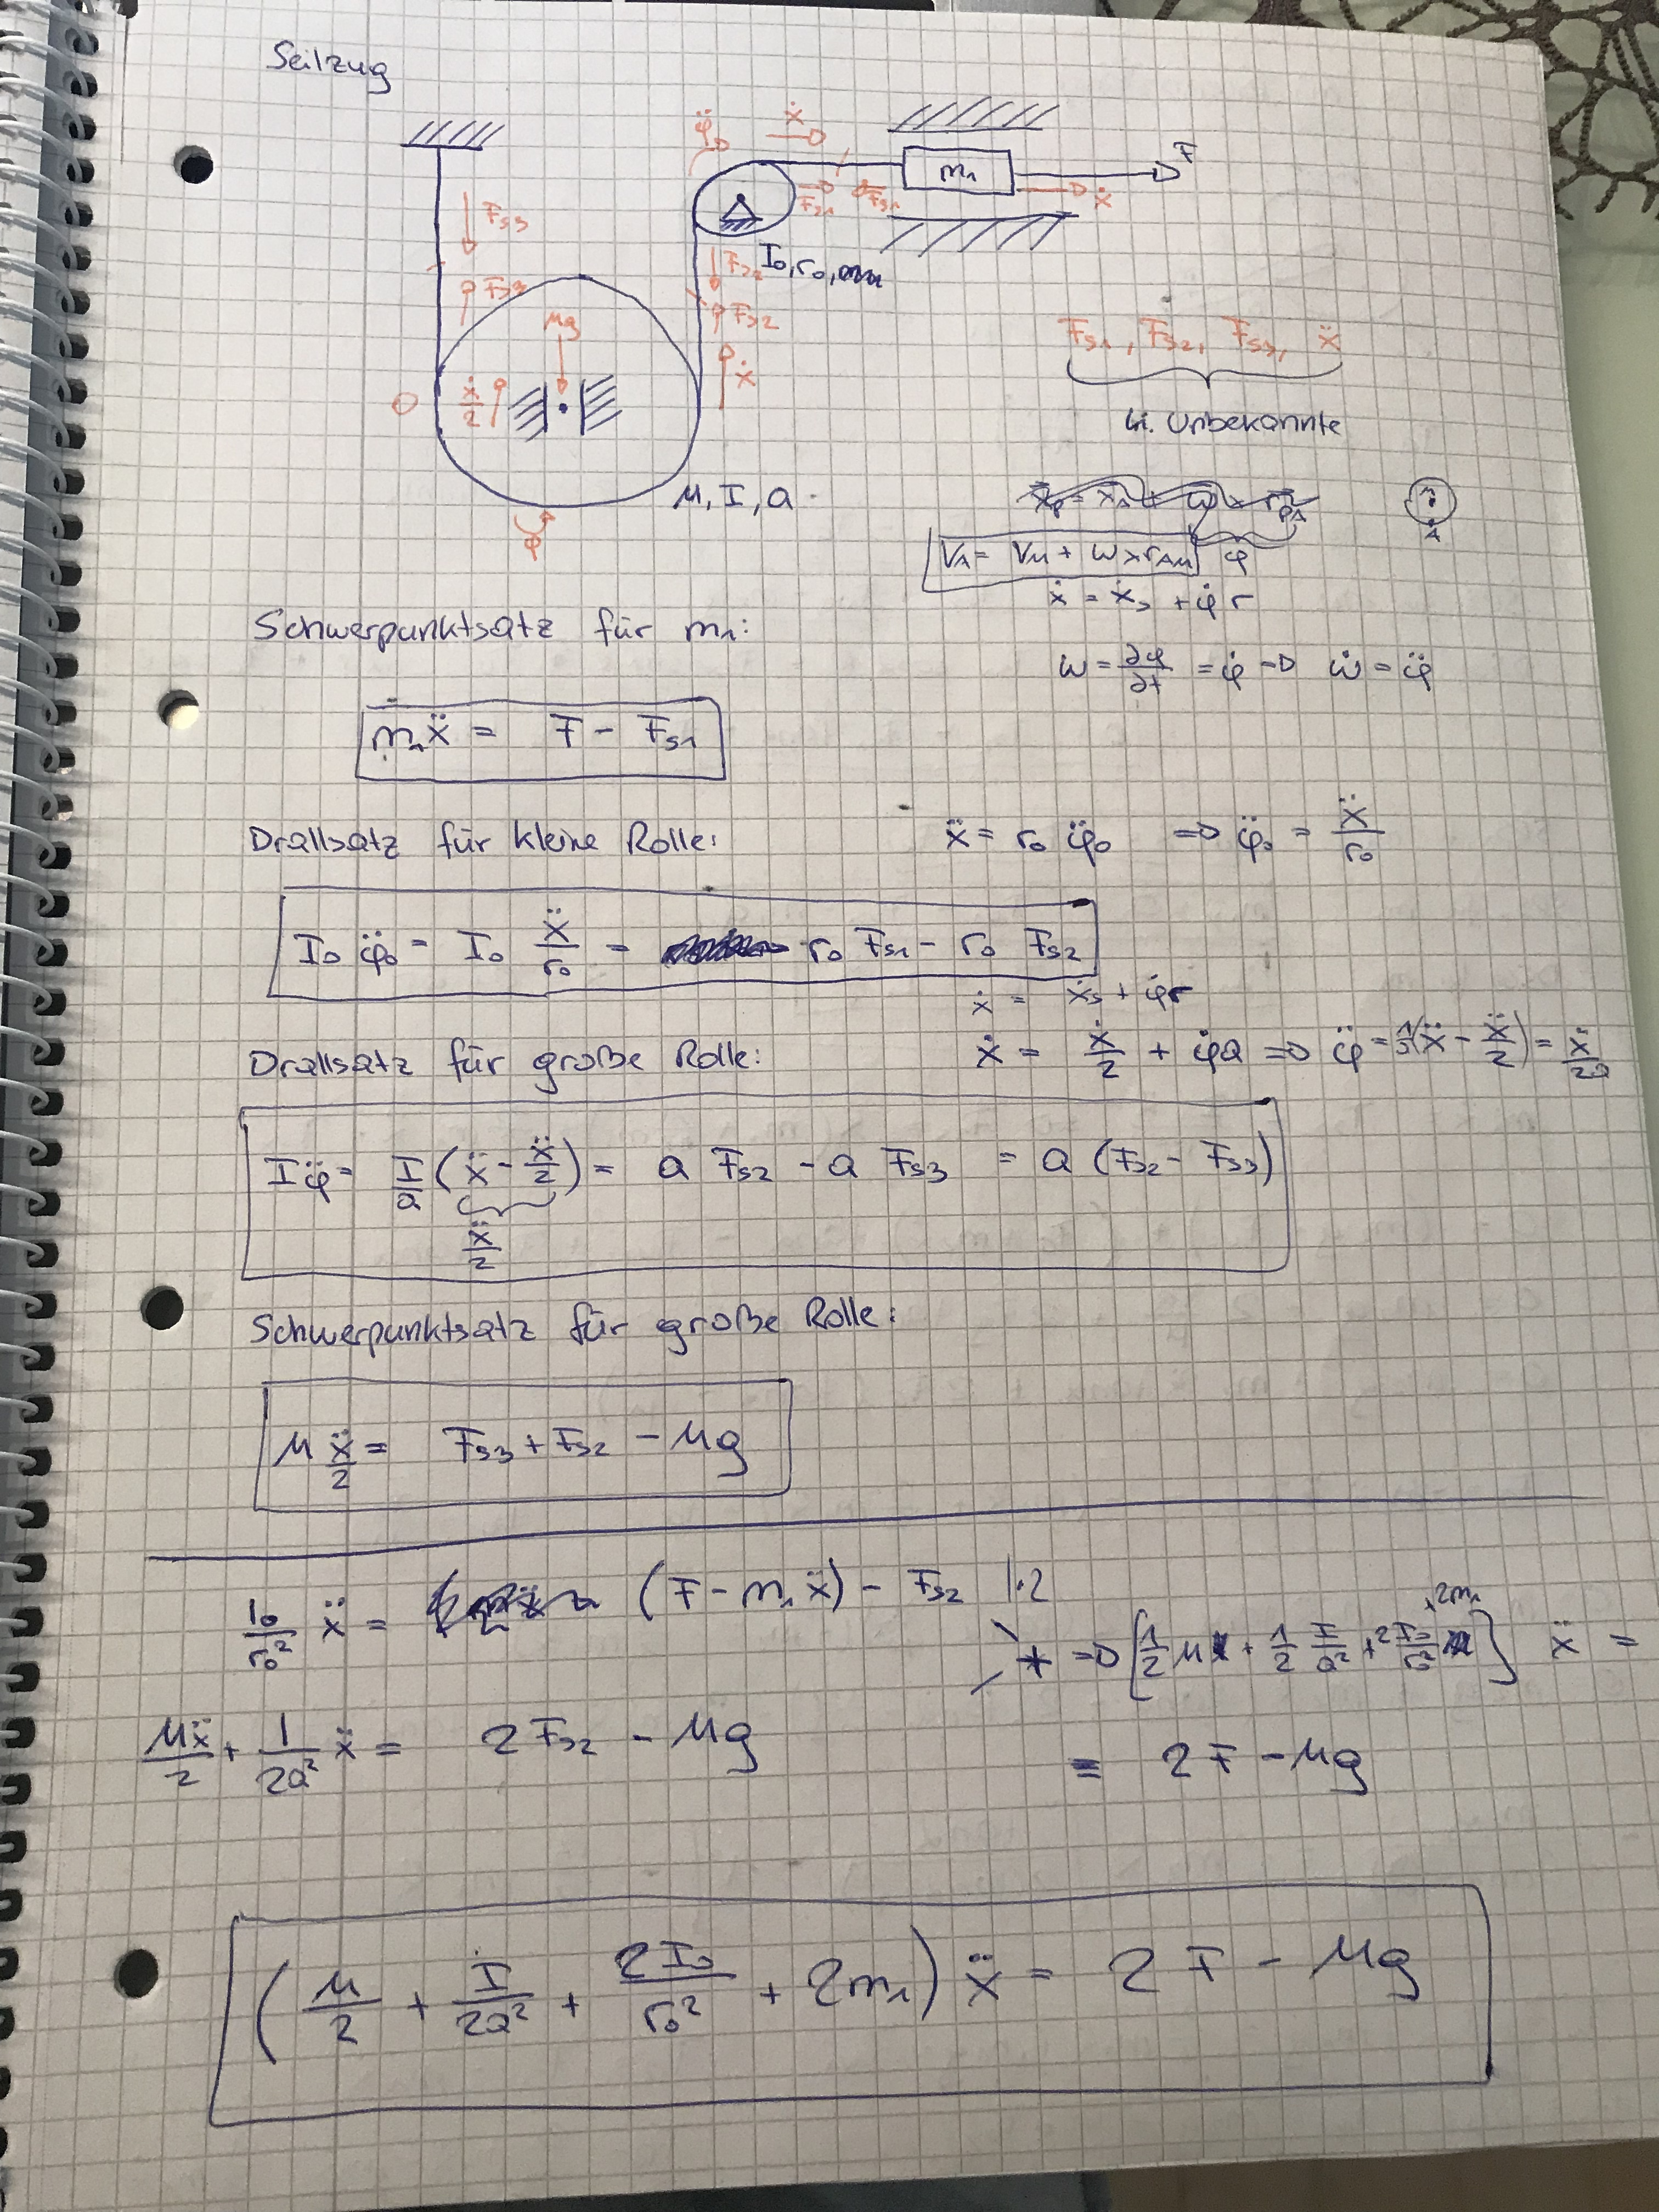 Seilzug
φ̈ ẋ
m₁ F
F_S1 F_S1 ẋ
F_S3
I₀, r₀,
F_S2
F_S3 F_S2
Mg
F_S1, F_S2, F_S3, ẍ
0 ẋ/2 ẋ
4. Unbekannte
M, I, a
V_A = V_M + ω × r_AM φ
A
φ
ẋ = ẋ_s + φ̇ r
Schwerpunktsatz für m₁:
ω = ∂φ/∂t = φ̇ ⇒ ω̇ = φ̈
m₁ẍ = F - F_S1
Drallsatz für kleine Rolle: ẍ = r₀ φ̈₀ ⇒ φ̈₀ = ẍ/r₀
I₀ φ̈₀ = I₀ ẍ/r₀ = r₀ F_S1 - r₀ F_S2
ẋ = ẋ_s + φ̇r
Drallsatz für große Rolle: ẋ = ẋ/2 + φ̇a ⇒ φ̈ = 1/a(ẍ - ẍ/2) = ẍ/2a
Iφ̈ = I/a (ẍ - ẍ/2) = a F_S2 - a F_S3 = a (F_S2 - F_S3)
ẍ/2
Schwerpunktsatz für große Rolle:
M ẍ/2 = F_S3 + F_S2 - Mg
I₀/r₀² ẍ = (F - m₁ẍ) - F_S2 |·2
⇒ [1/2 M + 1/2 I/a² + 2 I₀/r₀² + 2m₁] ẍ =
Mẍ/2 + I/2a² ẍ = 2F_S2 - Mg
= 2F - Mg
(M/2 + I/2a² + 2I₀/r₀² + 2m₁) ẍ = 2F - Mg